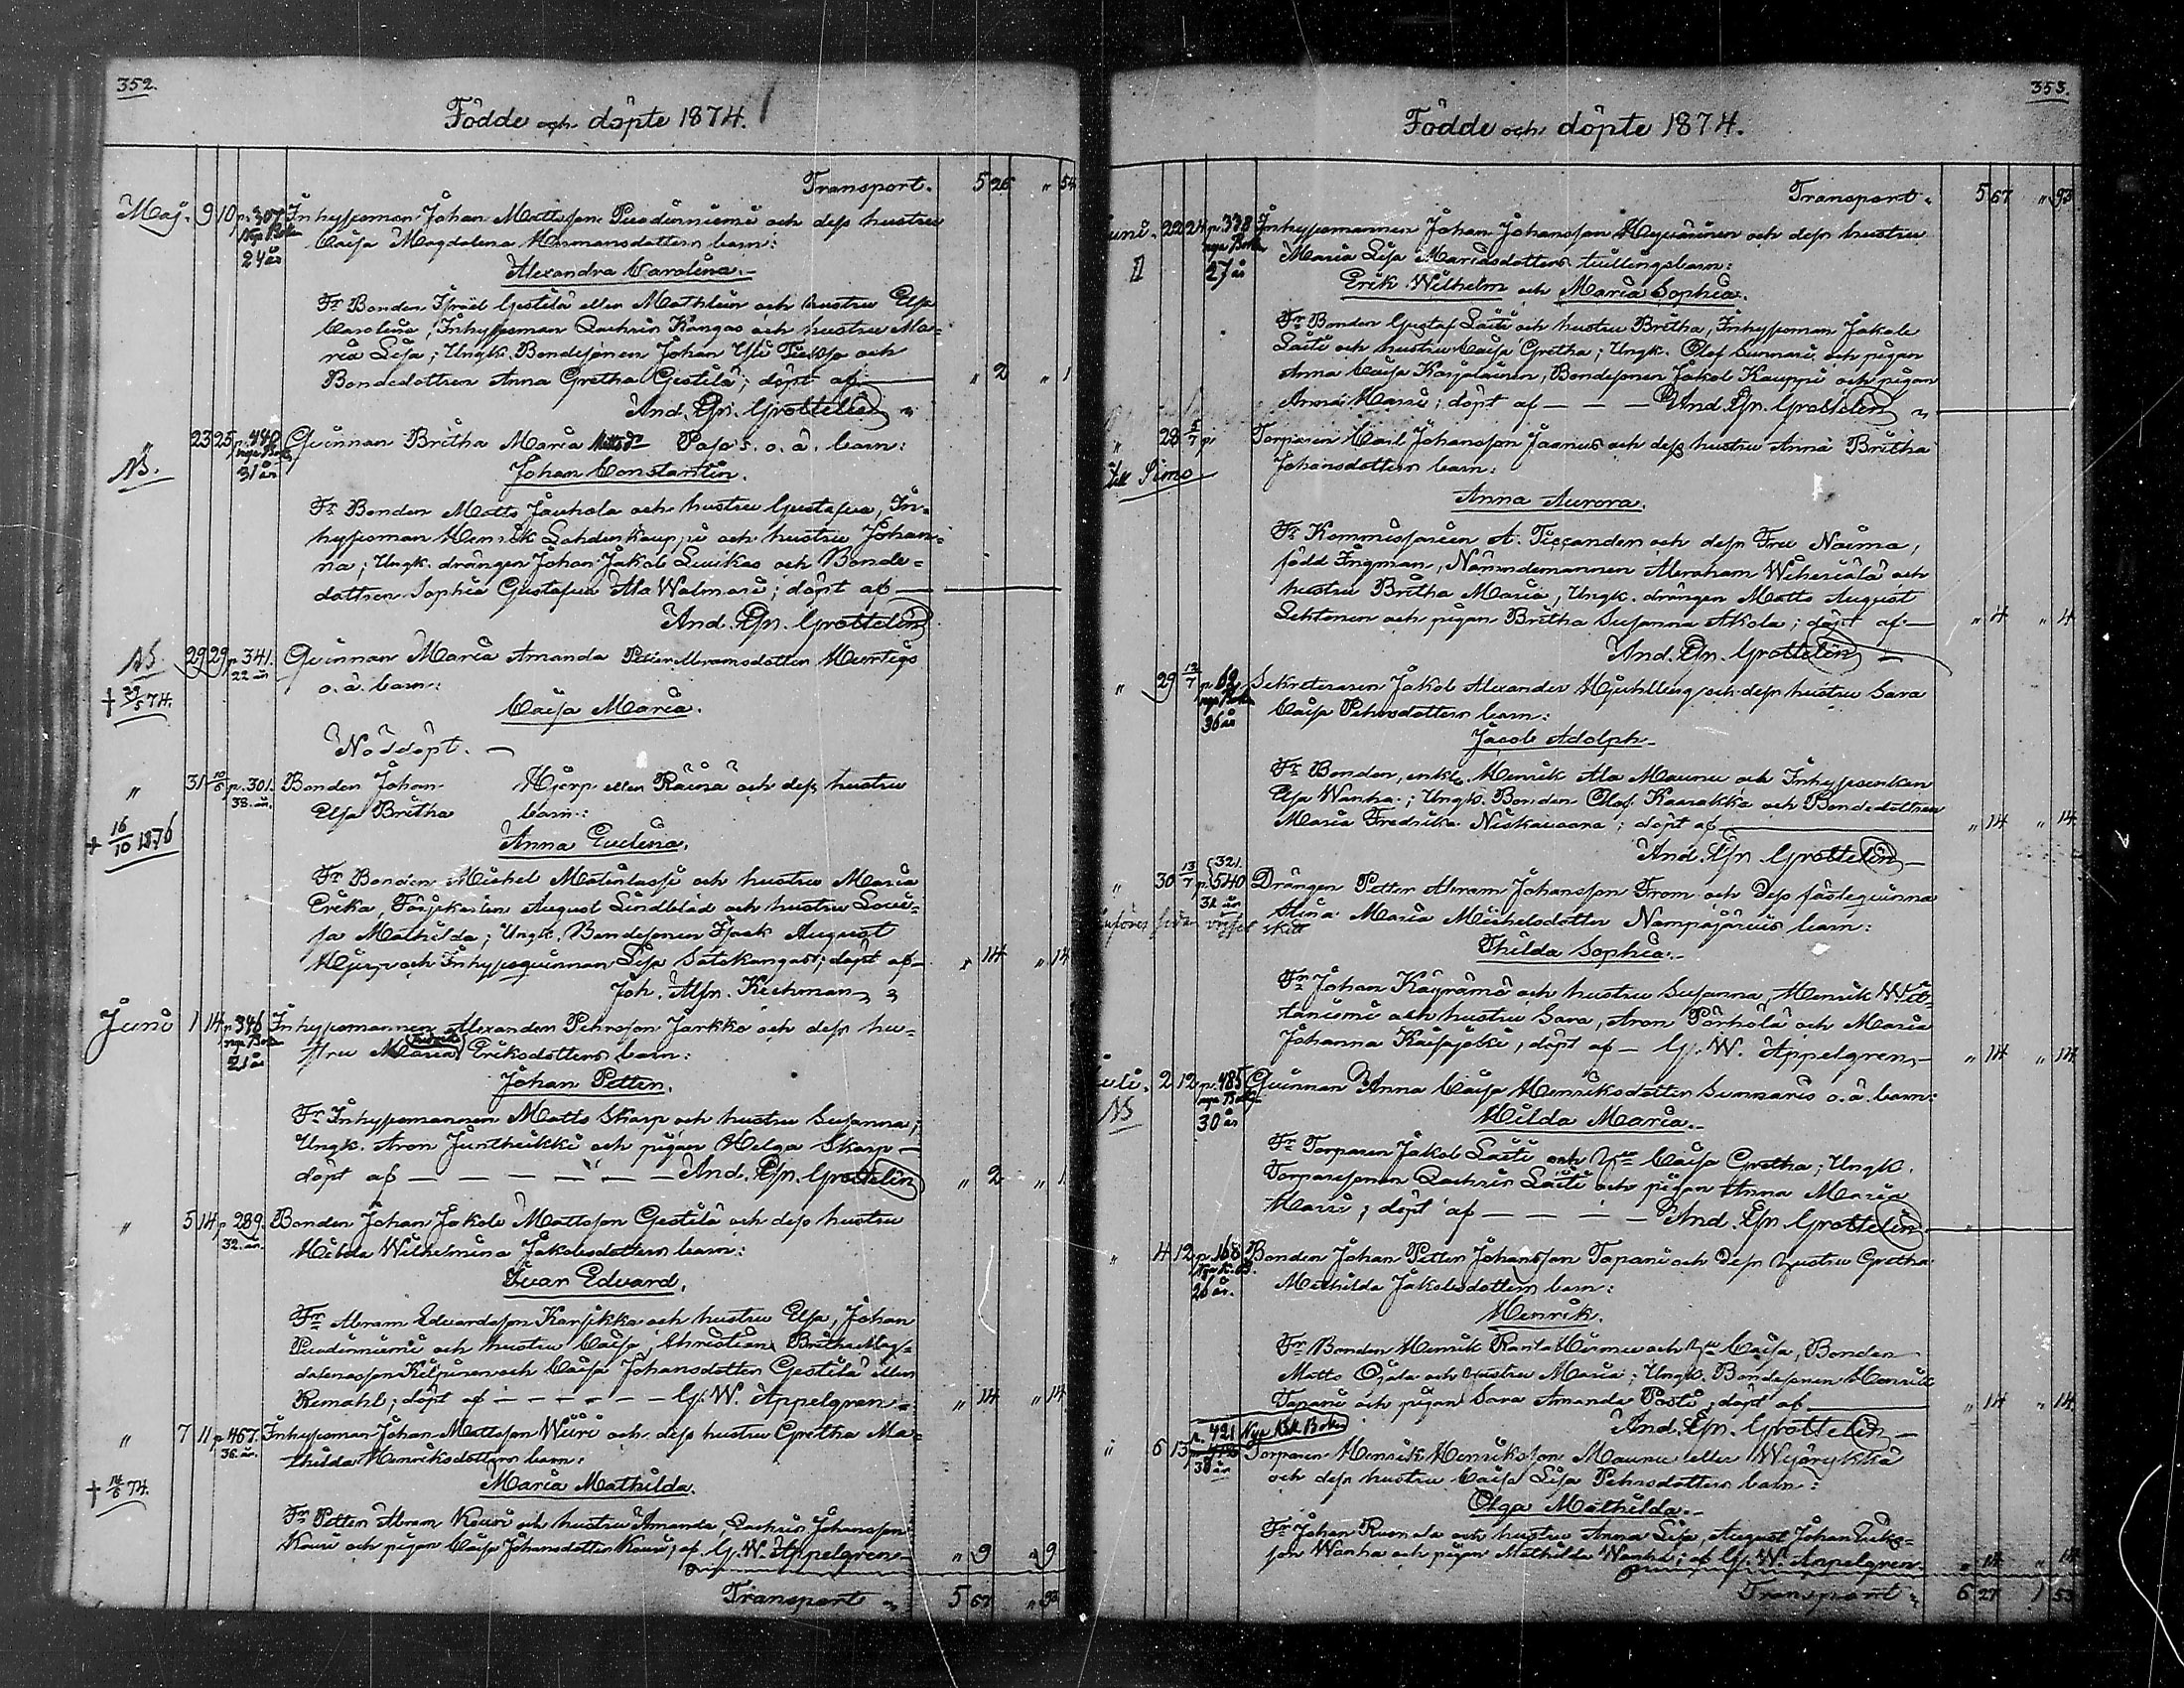 352.
Födde och döpte 1874.
Transport. 5 26 " 54
Maj. 9 10 p. 307 Inhysesman Johan Mattsson Puodinniemi och dess hustru
Nya Boken Caisa Magdalena Hermansdotters barn:
24 år
Alexandra Carolina.
Fr Bonden Isräel Gestilä eller Mathlein och hustru Elsa
Carolina; Inhysesman Zachris Kangas och hustru Ma-
ria Lisa; Ungk. Bondesonen Johan Yli och
Bondedottren Anna Gretha Gestilä; döpt af — " 2 " 1
And. Efr. Grottelin
" 23 25 p. 440 Qvinnan Britha Maria Mattsdr Paso's o. ä. barn:
nya Boken
NB. 31 år Johan Constantin.
Fr Bonden Matts Jauhola och hustru Gustafva, In-
hysesman Henrik Lahdenkauppi och hustru Johan-
na; Ungk. drängen Johan Jakob Liuikas och Bonde-
dottren Sophia Gustafva Ala Walmari; döpt af —
And. Efr. Grottelin
NB. 29 29 p. 341. Qvinnan Maria Amanda Petter Abramsdotter Hurtigs
22 år o. ä. barn:
† 29/5 74.
Caisa Maria.
Nöddöpt. —
" 31 10/6 p. 301. Bonden Johan Hjerp eller Räinä och dess hustru
38. år. Elsa Britha barn:
† 16/10 1876
Anna Evelina.
Fr Bonden Michel Matinlassi och hustru Maria
Erika, Färjkarlen August Lindblad och hustru Loui-
sa Mathilda; Ungk. Bondesonen Isaak August
Hjerp och Inhysesqvinnan Lisa Satokangas; döpt af — " 14 " 14
Joh. Alfr. Keckman
Juni 1 14 p. 346 Inhysesmannen Alexander Pehrsson Jarkko och dess hu-
nya Boken stru Maria Eriksdotters barn:
21 år
Johan Petter.
Fr Inhysesmannen Matts Skarp och hustru Susanna;
Ungk. Aron Juntheikki och pigan Helga Skarp —
döpt af — — — — — And. Efr. Grottelin " 2 " 1
" 5 14 p. 289. Bonden Johan Jakob Mattsson Gestilä och dess hustru
32. år. Hilda Wilhelmina Jakobsdotters barn:
Ivar Edvard.
Fr Abram Edvardsson Karsikka och hustru Elsa, Johan
Puodinniemi och hustru Caisa, Christian Britha Mag-
dalenasson Kilpinen och Caisa Johansdotter Gestilä eller
Remahl; döpt af — — — — — G. W. Appelgren " 14 " 14
" 7 11 p. 467. Inhysesman Johan Mattsson Wiiri och dess hustru Gretha Ma-
36. år. thilda Henriksdotters barn:
† 14/6 74.
Maria Mathilda.
Fr Petter Abram Kouri och hustru Amanda, Zachris Johansson
Kouri och pigan Caisa Johansdotter Kouri; af G. W. Appelgren " 9 " 9
Transport 5 67 " 93
353.
Födde och döpte 1874.
Transport. 5 67 " 93
Juni. 22 24 p. 338 Inhysesmannen Johan Johansson Heyväinen och dess hustru
nya Boken Maria Lisa Mariasdotters tvillingsbarn:
II 27 år
Erik Wilhelm och Maria Sophia.
Fr Bonden Gustaf Laiti och hustru Britha, Inhysesman Jakob
Laiti och hustru Caisa Gretha; Ungk. Olof Sunnari och pigan
Anna Caisa Karjalainen, Bondesonen Jakob Kauppi och pigan
Anna Harri; döpt af — — — And. Efr. Grottelin
" 28 5/7 p. Torparen Carl Johansson Jaanus och dess hustru Anna Britha
till Simo Johansdotters barn:
Anna Aurora.
Fr Kommissarien A. Ticcander och dess Fru Naima,
född Ingman, Nämndemannen Abraham Wiheriälä och
hustru Britha Maria, Ungk. drängen Matts August
Lehtonen och pigan Britha Susanna Akola; döpt af — " 4 " 4
And. Efr. Grottelin —
" 29 12/7 p. 62 Sekreteraren Jakob Alexander Hjuhlberg och dess hustru Sara
nya Boken Caisa Pehrsdotters barn:
36 år
Jacob Adolph.
Fr Bonden, enkl. Henrik Ala Maunu och Inhysesenkan
Elsa Wanha; Ungk. Bonden Olof Kaarakka och Bondedottren
Maria Fredrika Niskavaara; döpt af — " 14 " 14
And. Efr. Grottelin —
" 30 13/7 p. 321. 540 Drängen Petter Abram Johansson From och dess fästeqvinna
31 år Stina Maria Michelsdotter Nampajärvis barn:
Thilda Sophia.
Fr Johan Käyrämö och hustru Susanna, Henrik Wit-
taniemi och hustru Sara, Aron Pörhölä och Maria
Johanna Kaisajoki, döpt af — G. W. Appelgren — " 14 " 14
Juli. 2 12 p. 485 Qvinnan Anna Caisa Henriksdotter Sunnaris o. ä. barn:
nya Boken
NB 30 år
Hilda Maria.
Fr Torparen Jakob Laiti och Hu Caisa Gretha; Ungk.
Torparesonen Zachris Laiti och pigan Anna Maria
Harri; döpt af — — — — And. Efr. Grottelin
" 4 12 p. 168 Bonden Johan Petter Johansson Tapani och dess hustru Gretha
Nya K. B. Mathilda Jakobsdotters barn:
26 år.
Henrik.
Fr Bonden Henrik Ranta Hirmu och Hu Caisa, Bonden
Matts Ojala och hustru Maria; Ungk. Bondesonen Henrik
Tapani och pigan Sara Amanda Posti; döpt af — " 14 " 14
And. Efr. Grottelin —
p. 421 Nya Kk Boken
" 6 13 Torparen Henrik Henriksson Maunu eller Wejärykkä
38 år och dess hustru Caisa Lisa Pehrsdotters barn:
Olga Mathilda.
Fr Johan Ruonala och hustru Anna Lisa, August Johan Eriks-
son Wanha och pigan Mathilda Wanha; af G. W. Appelgren. " 14 " 14
Transport 6 27 1 53